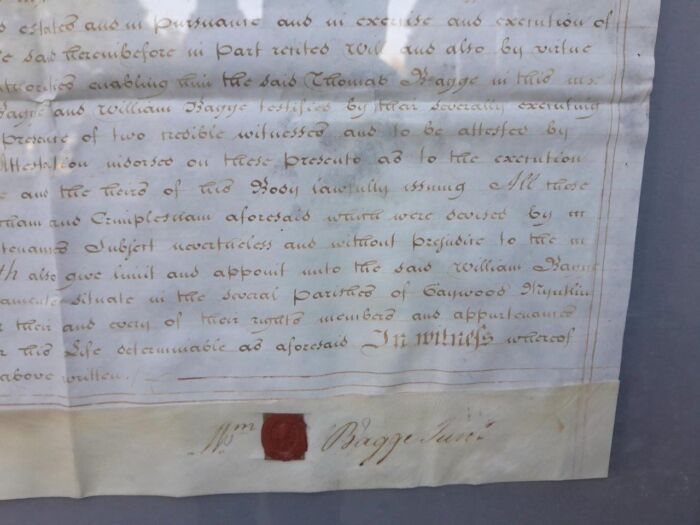 s estates and in pursuance and in exercise and execution of
said hereinbefore in part recited Will and also by virtue
authorities enabling him the said Thomas Bagge in this
Bagge and William Bagge testified by their severally executing
presence of two credible witnesses and to be attested by
Attestation indorsed on these presents as to the execution
and the heirs of his Body lawfully issuing All those
tham and Crimplesham aforesaid which were devised by
tenances Subject nevertheless and without prejudice to the
th also give limit and appoint unto the said William Bagge
situate in the several Parishes of Gaywood
their and every of their rights members and appurtenances
this Life determinable as aforesaid In witness whereof
above written.
Wm Bagge Junr